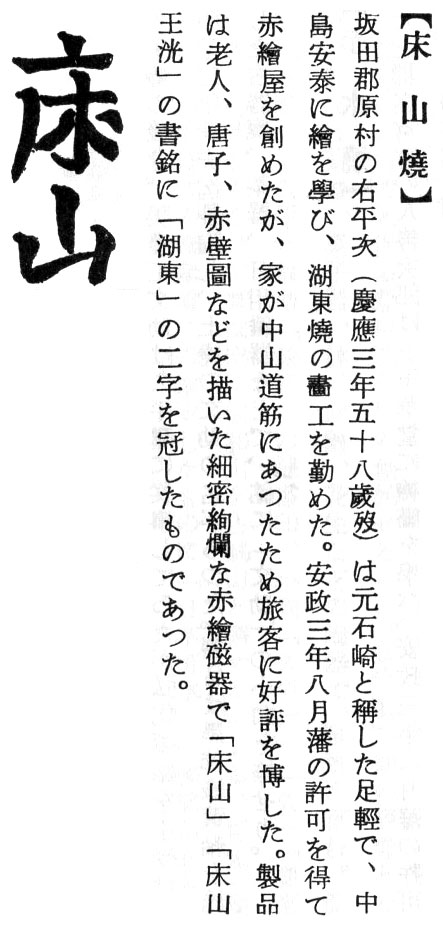 【床山燒】
坂田郡原村の右平次（慶應三年五十八歲歿）は元石崎と稱した足輕で、中
島安泰に繪を學び、湖東燒の畵工を勤めた。安政三年八月藩の許可を得て
赤繪屋を創めたが、家が中山道筋にあつたため旅客に好評を博した。製品
は老人、唐子、赤壁圖などを描いた細密絢爛な赤繪磁器で「床山」「床山
王洸」の書銘に「湖東」の二字を冠したものであつた。
床山